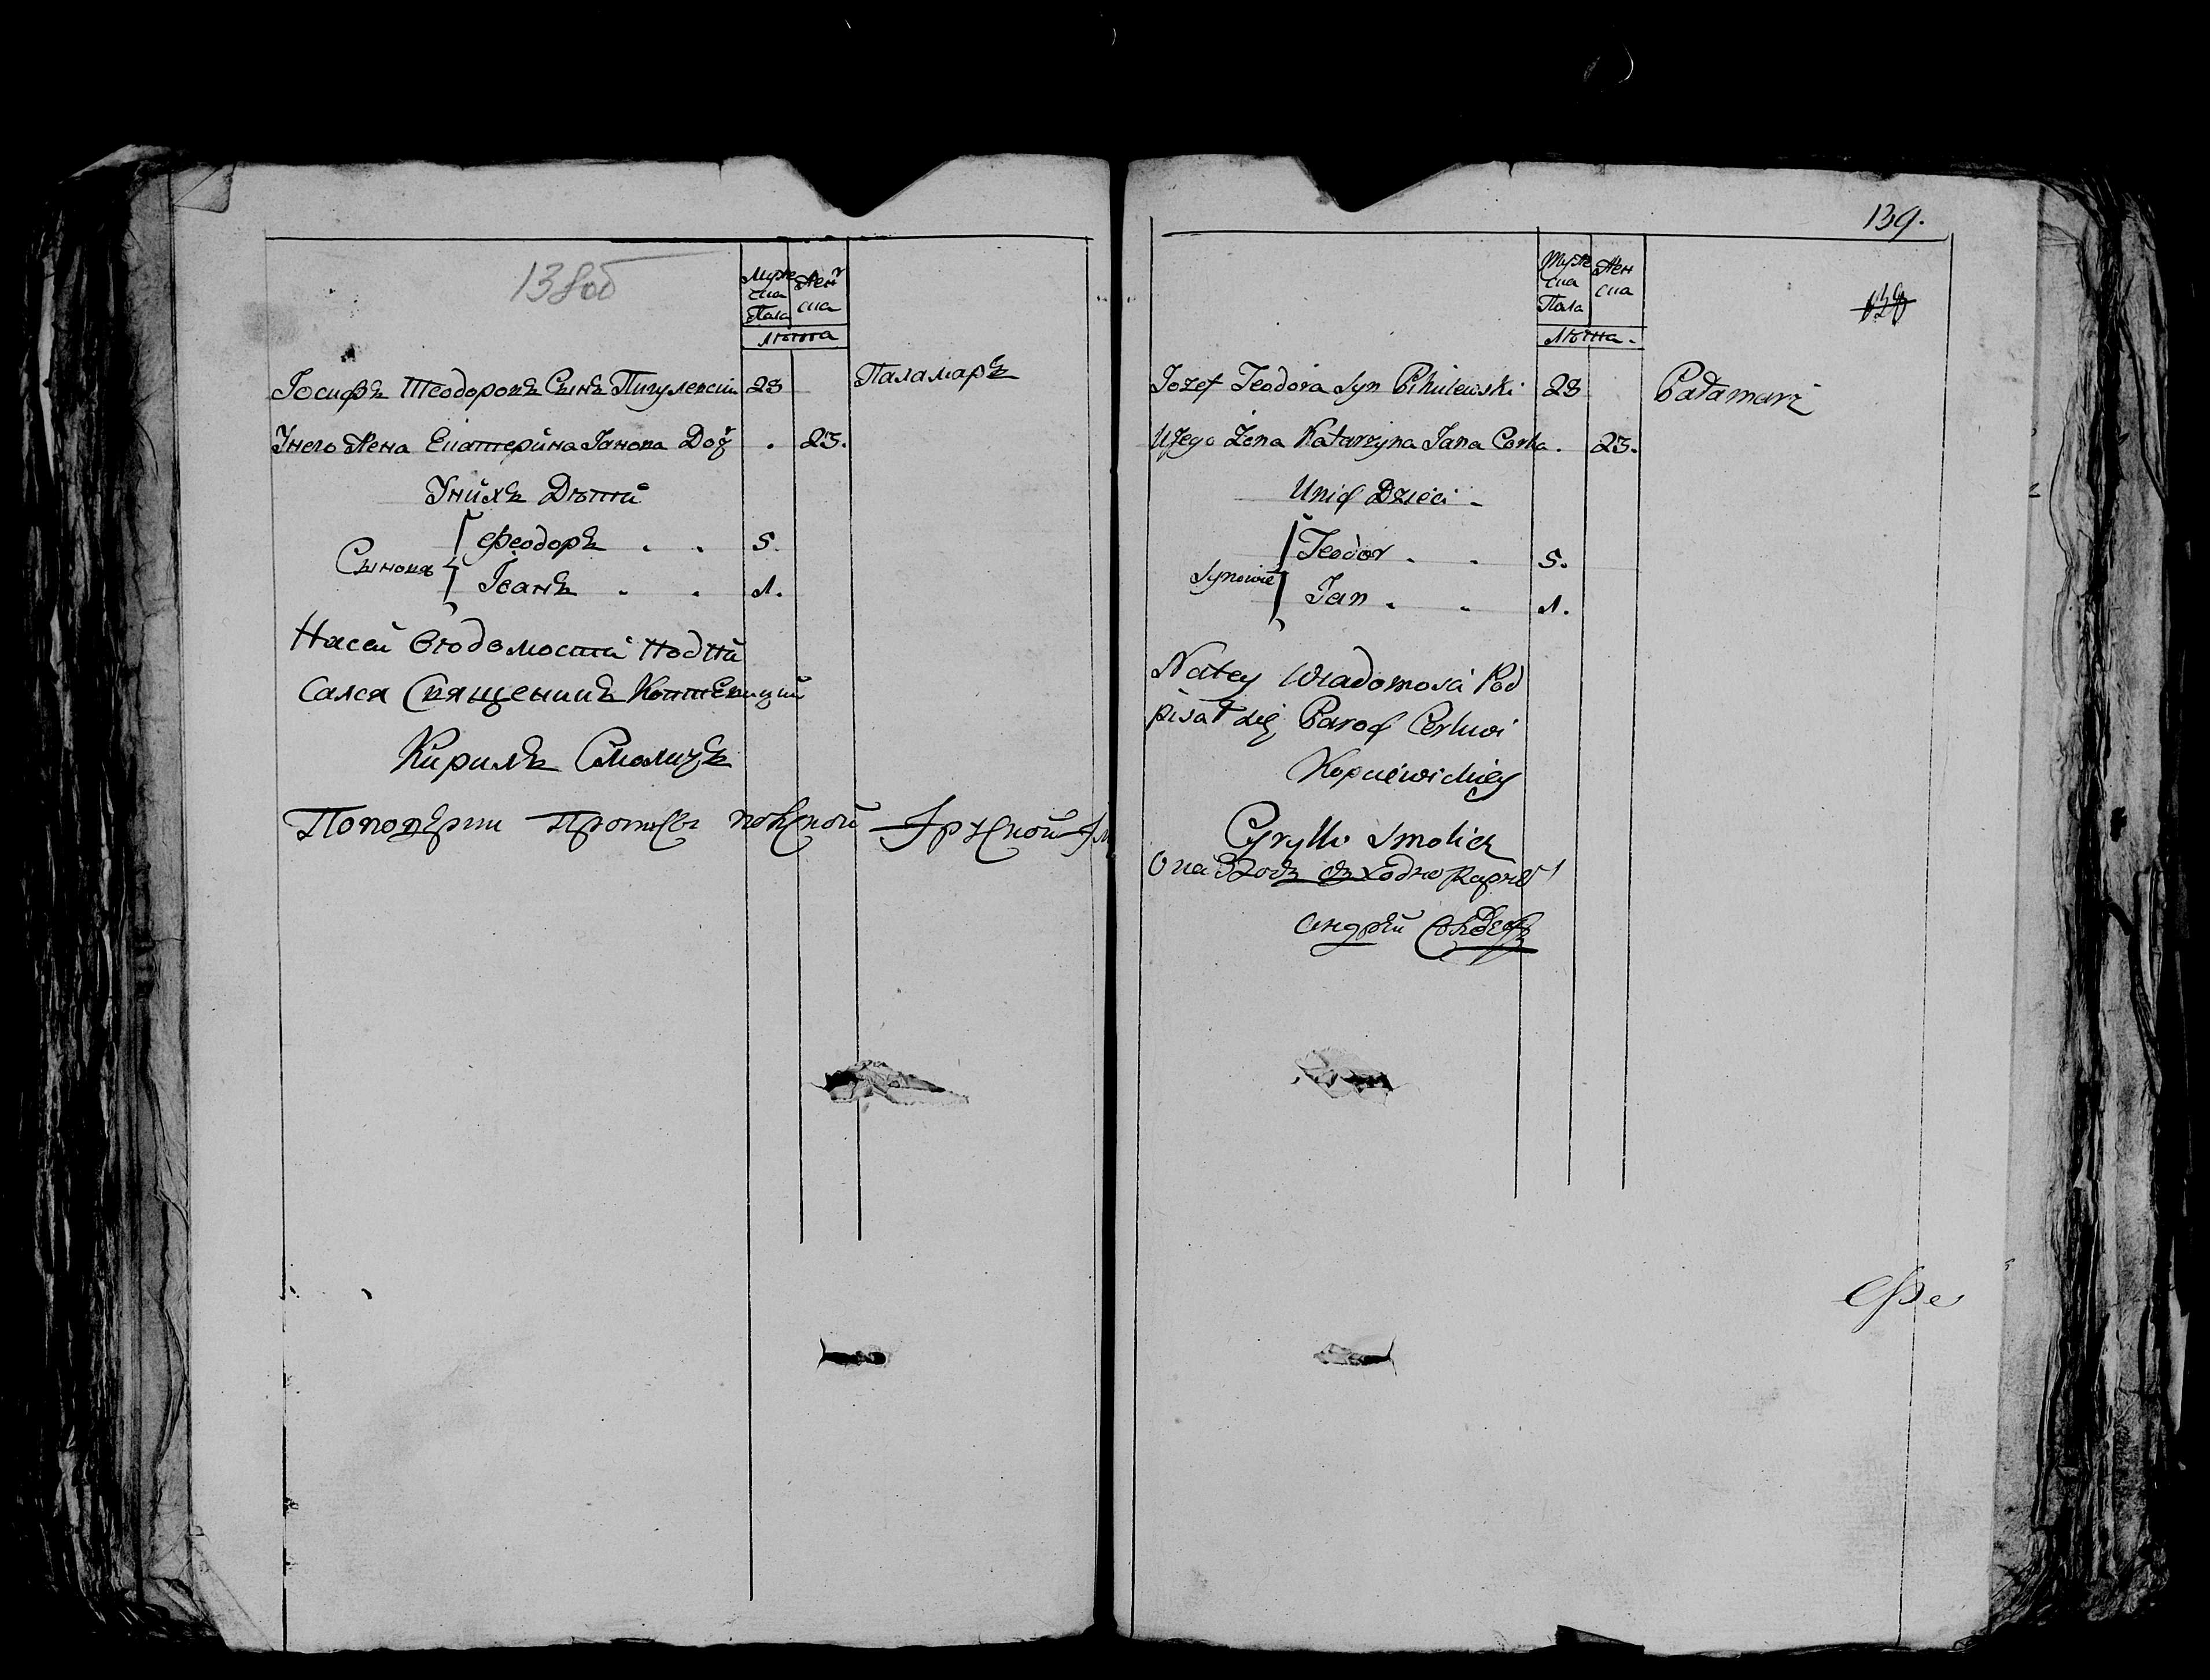 138об
Муже
ска
Пола
Жен
ска
Лѣта
Іосифъ Теодоровъ Сынъ Пигулевски 28 Паламаръ
Унего Жена Екатерина Іанова Доч . 23.
Унихъ Дѣти
Сыновя
Феодоръ . . 5.
Іоанъ . . 1.
Насей Вѣдомости Подпи
сался Священикъ Копцевицкий
Кирилъ Смоличъ
139.
Муже
ска
Пола
Жен
ска
Лѣта.
139
Jozef Teodora Syn Pihulewski 28 Padamarz
UJego Zena Katarzyna Jana Corka . 23.
Unich Dzieci
Synowie
Teodor . . 5.
Jan . . 1.
Natey Wiadomosci Pod
pisał się Paroch Cerkwi
Kopciewickiey
Cyryllo Smolicz
Андрей